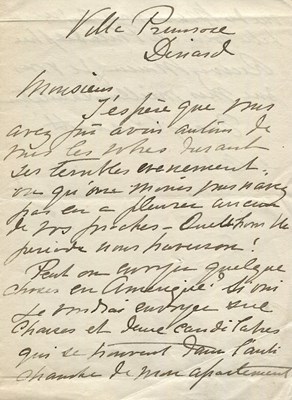 Villa Primrose
Dinard
Monsieur
J'espère que vous
avez pu avoir autour de
vous les vôtres durant
ces terribles evenements,
ou qu'au moins vous n'avez
pas eu a pleurer aucun
de vos proches - Quelle
periode nous traversons!
Peut on envoyer quelque
choses en Amerique? Si oui
Je voudrais envoyer six
chaises et deux candelabres
qui se trouvent dans l'anti
chambre de mon apartement